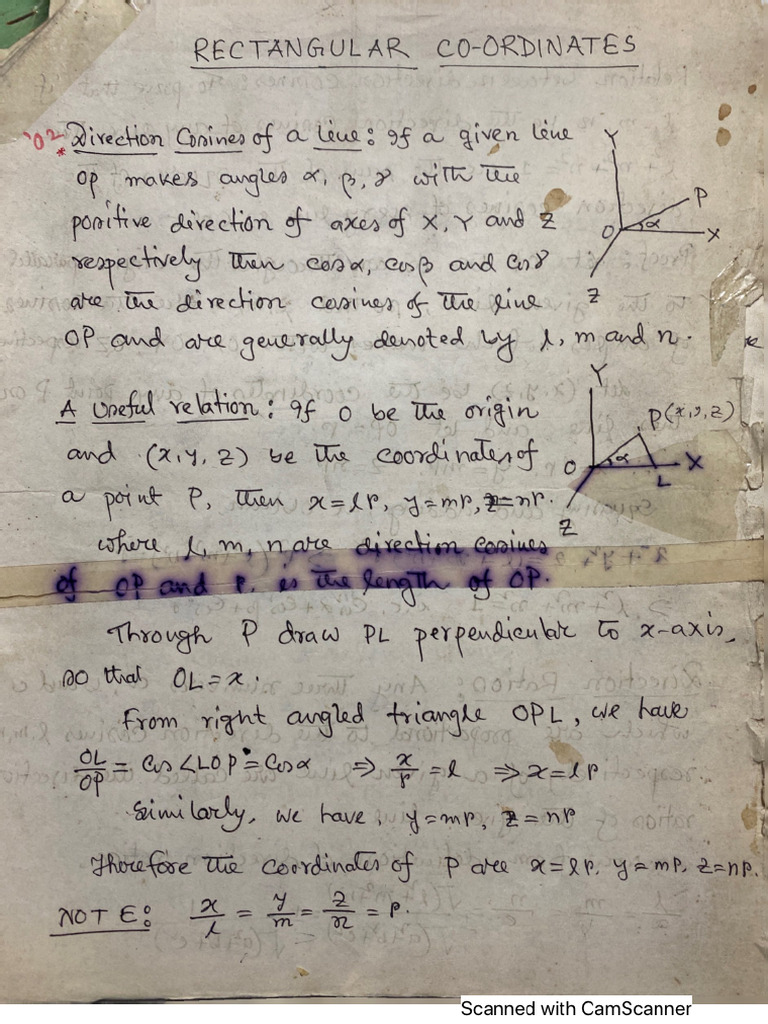 RECTANGULAR CO-ORDINATES
'02 * Direction Cosines of a Line: If a given line
OP makes angles α, β, γ with the
positive direction of axes of X, Y and Z
respectively then cosα, cosβ and cosγ
are the direction cosines of the line
OP and are generally denoted by l, m and n.
Y
P
O
α
X
Z
A useful relation: If O be the origin
and (x, y, z) be the coordinates of
a point P, then x=lr, y=mr, z=nr.
where l, m, n are direction cosines
of OP and r, is the length of OP.
Y
P(x, y, z)
O
α
X
L
Z
Through P draw PL perpendicular to x-axis,
so that OL=x.
From right angled triangle OPL, we have
OL/OP = Cos∠LOP = Cosα ⇒ x/r = l ⇒ x=lr
Similarly, we have, y=mr, z=nr
Therefore the coordinates of P are x=lr, y=mr, z=nr.
NOTE: x/l = y/m = z/n = r.
Scanned with CamScanner